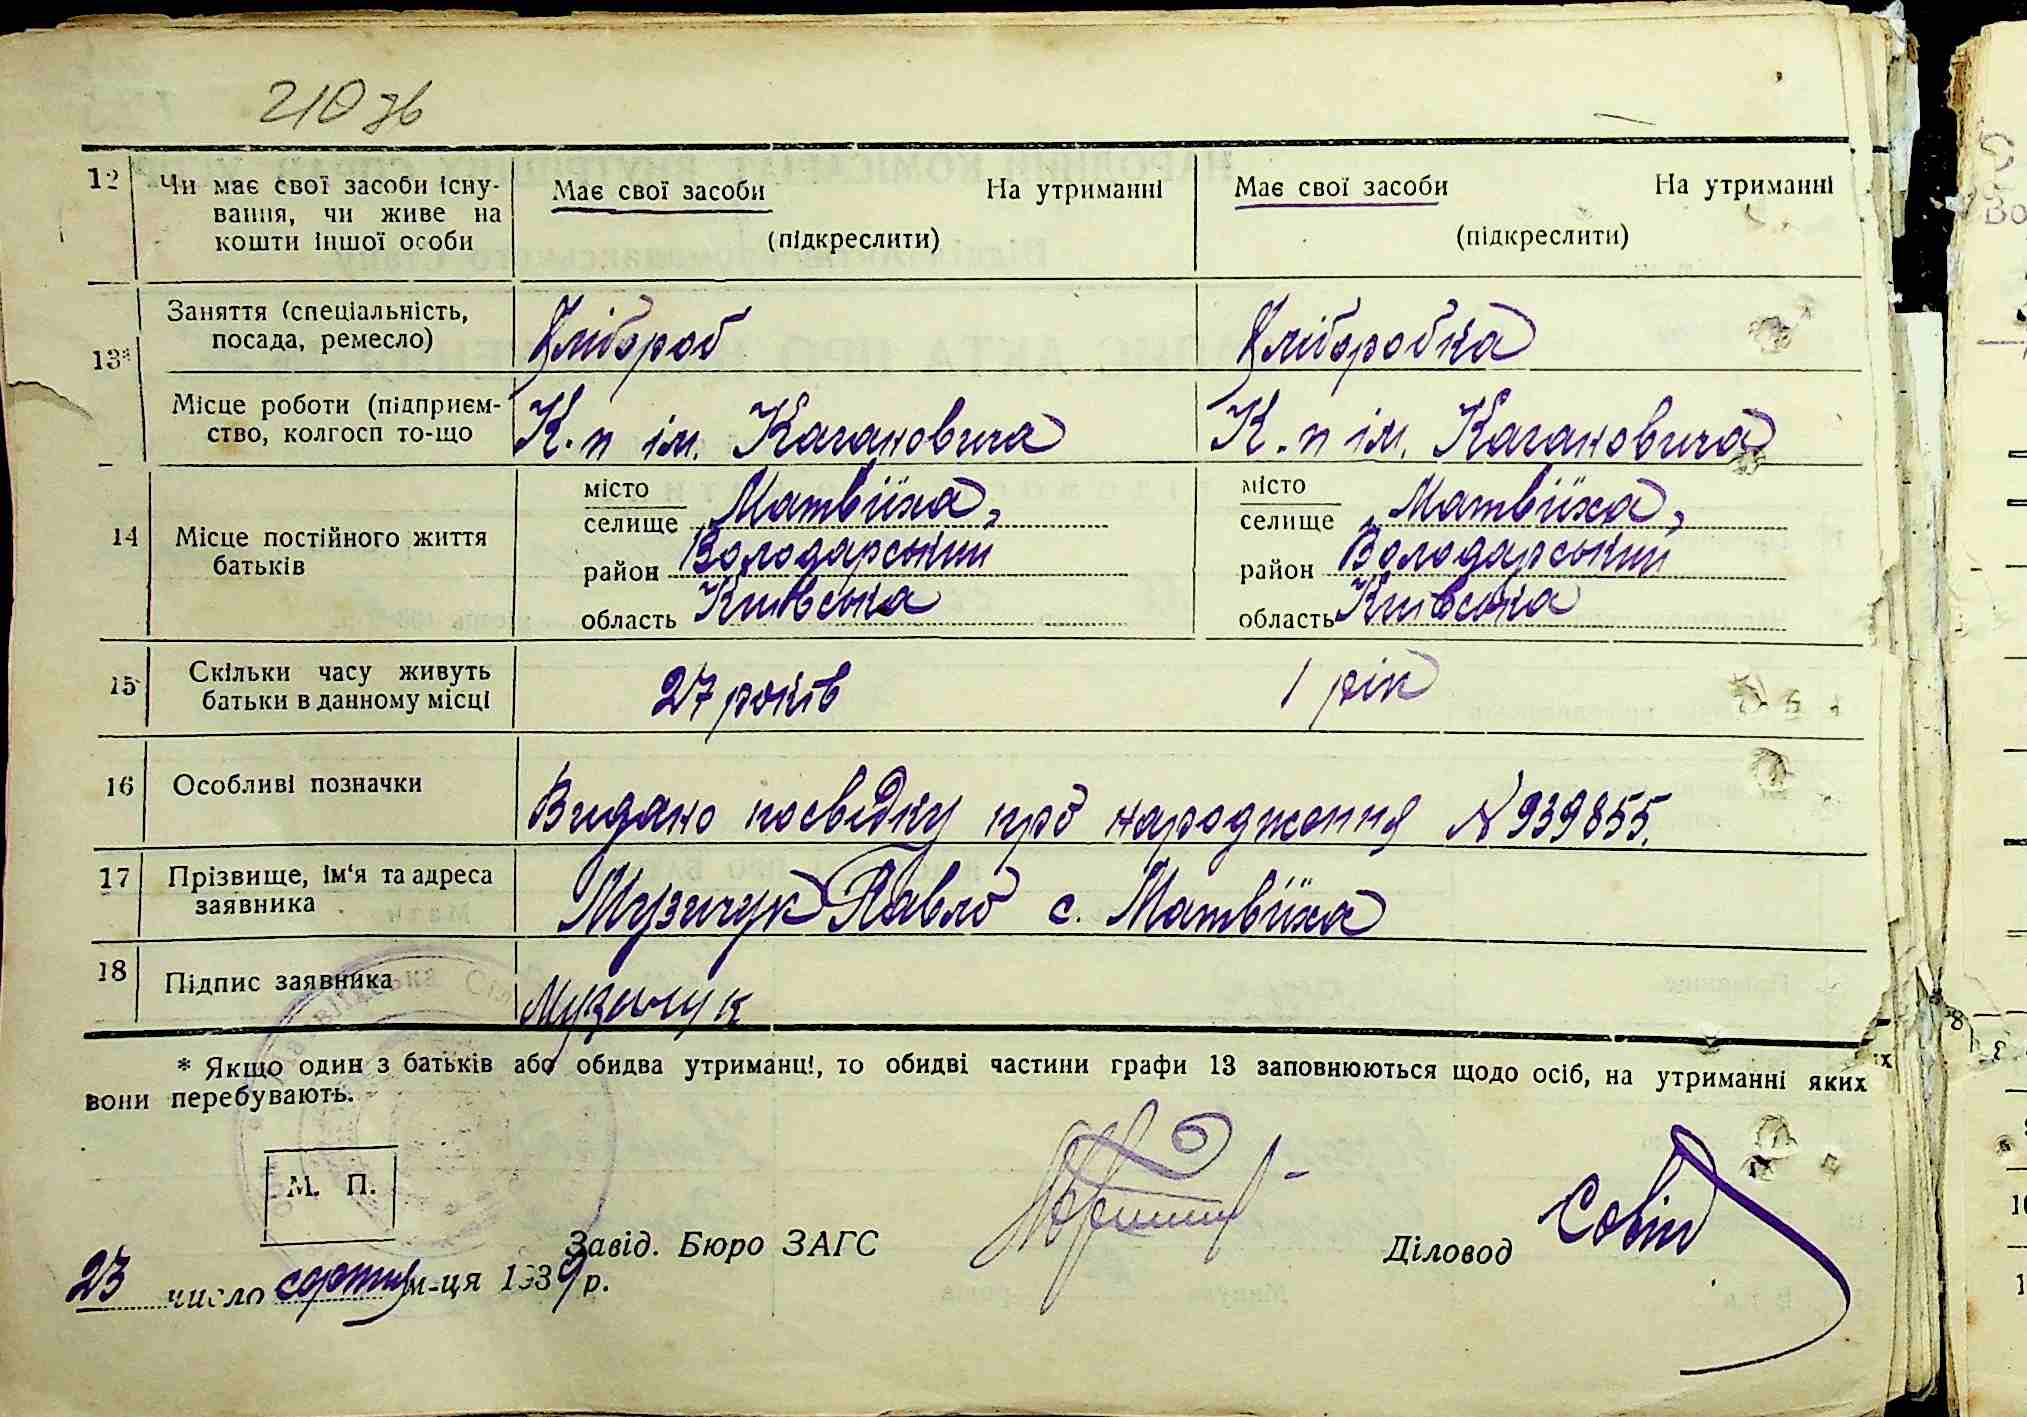 210 зв
12 Чи має свої засоби існу- Має свої засоби На утриманні Має свої засоби На утриманні
вання, чи живе на
кошти іншої особи (підкреслити) (підкреслити)
13* Заняття (спеціальність, Хлібороб Хліборобка
посада, ремесло)
Місце роботи (підприєм- К.п ім. Кагановича К.п ім. Кагановича
ство, колгосп то-що
14 Місце постійного життя батьків
місто селище Матвіїха, місто селище Матвіїха,
район Володарський район Володарський
область Київська область Київська
15 Скільки часу живуть 27 років 1 рік
батьки в данному місці
16 Особливі позначки Видано посвідку про народження № 939855.
17 Прізвище, ім'я та адреса Музичук Павло с. Матвіїха
заявника
18 Підпис заявника Музичук
* Якщо один з батьків або обидва утриманці, то обидві частини графи 13 заповнюються щодо осіб, на утриманні яких
вони перебувають.
М. П.
Завід. Бюро ЗАГС Діловод
23 число серпня м-ця 1939 р.